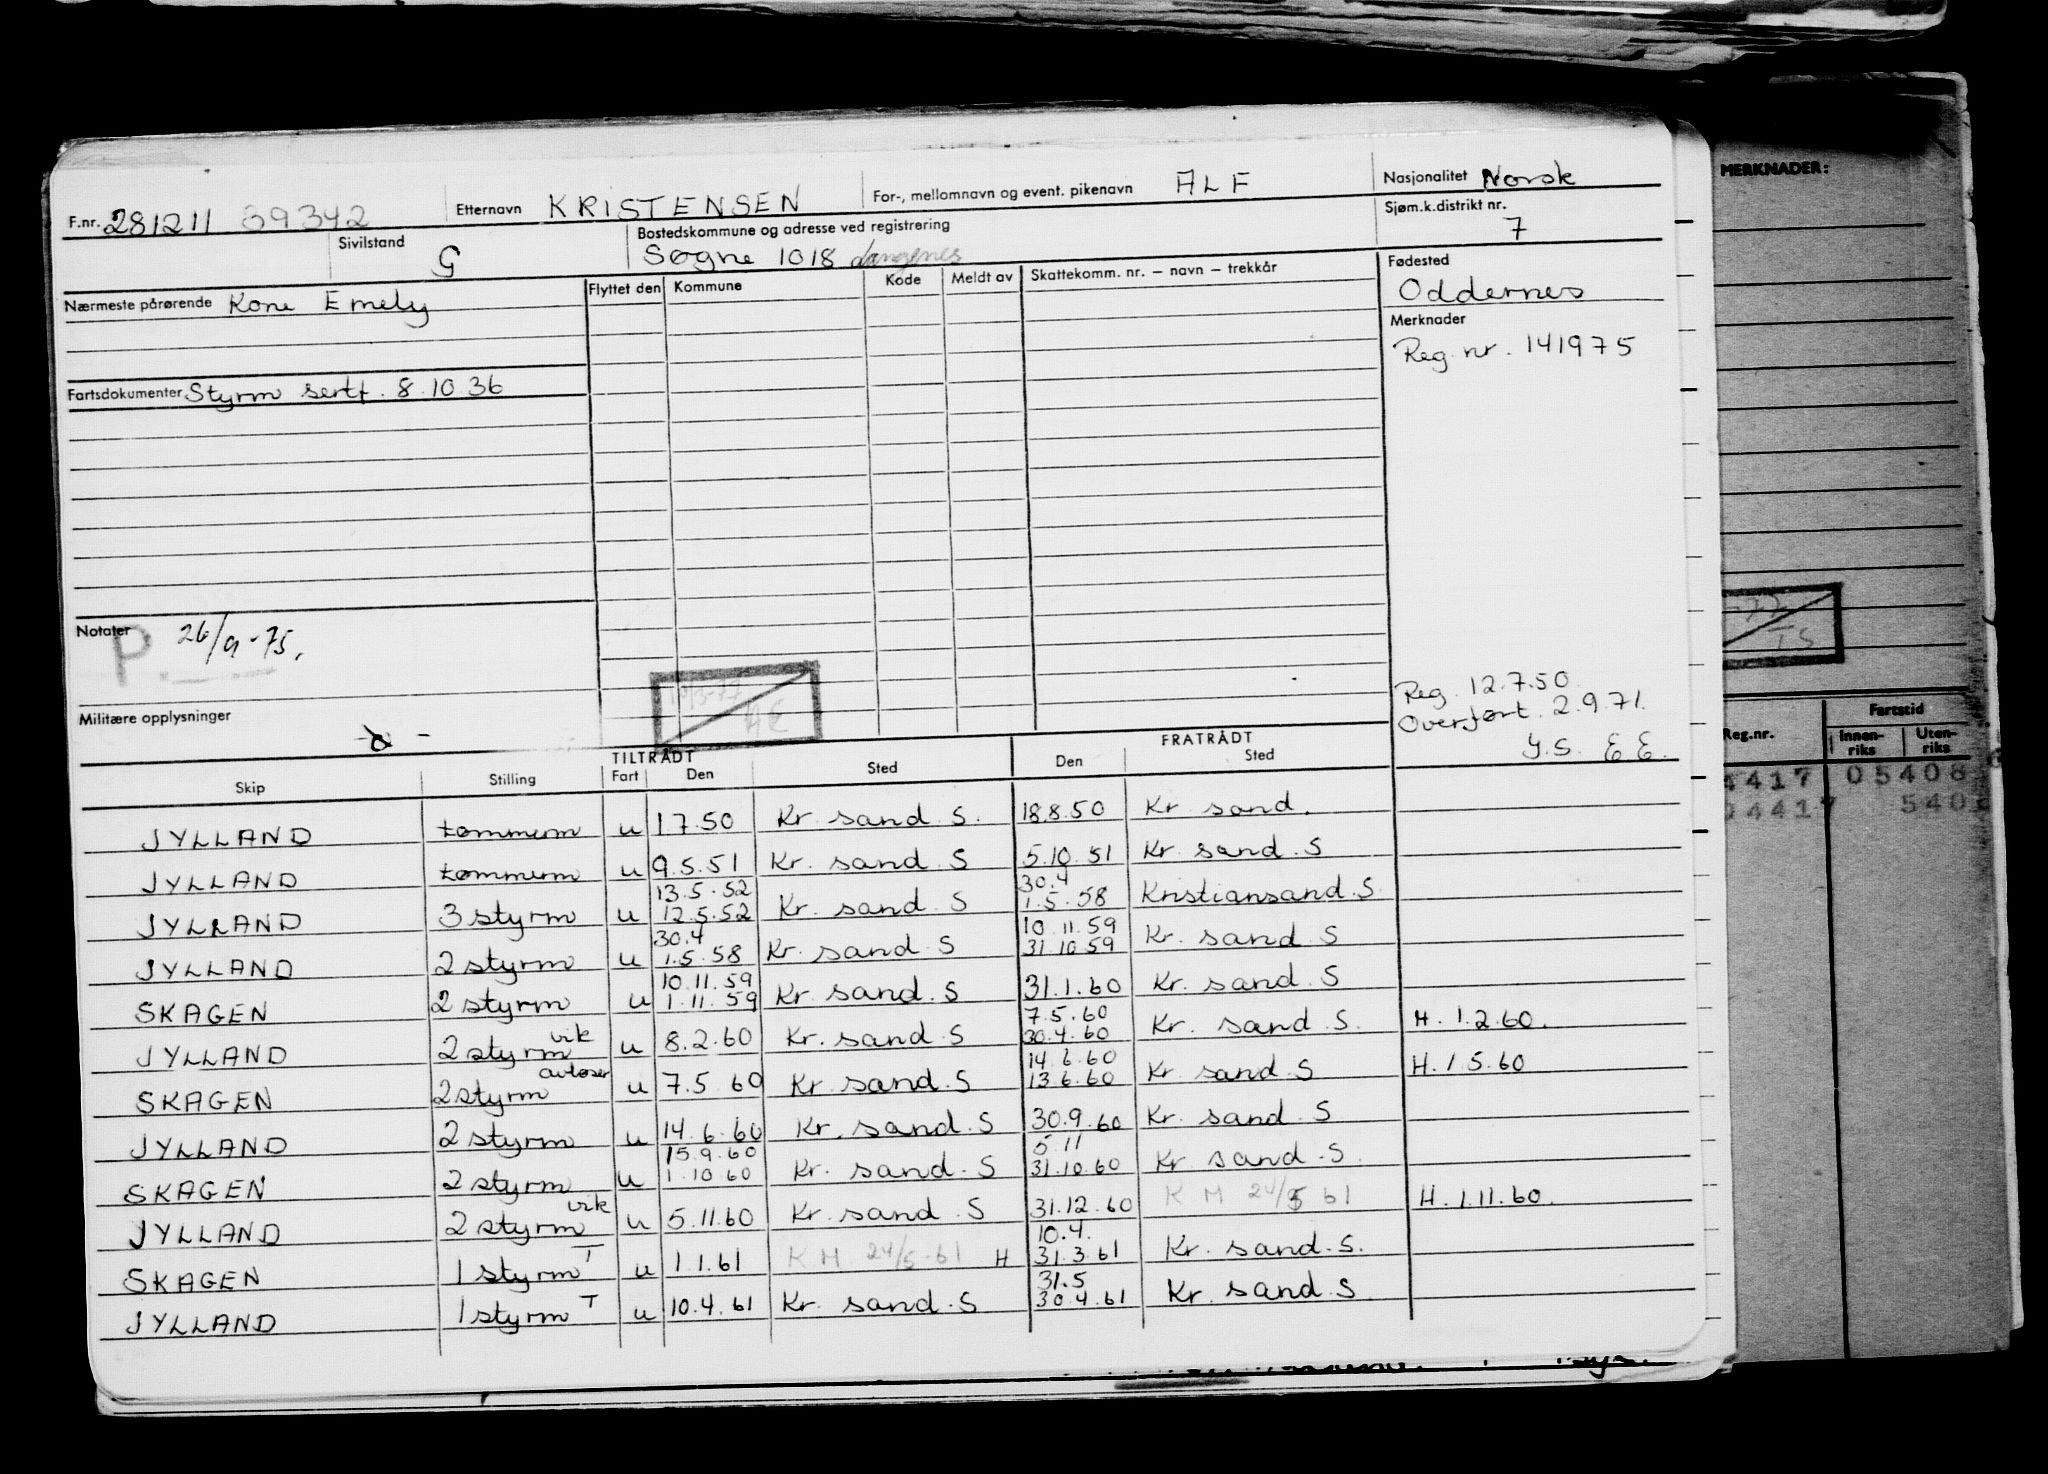 F.nr. 281211 39342 Etternavn KRISTENSEN For-, mellomnavn og event. pikenavn ALF Nasjonalitet Norsk
Sivilstand G Bostedskommune og adresse ved registrering Søgne 1018 Langenes Sjøm.k.distrikt nr. 7
Nærmeste pårørende Kone Emely Flyttet den Kommune Kode Meldt av Skattekomm. nr. – navn – trekkår Fødested Oddernes
Merknader
Reg. nr. 141975
Fartsdokumenter Styrm sertf. 8.10.36
Notater P. 26/9-75.
Militære opplysninger
Reg. 12.7.50
Overført. 2.9.71.
Y.S. E E.
TILTRÅDT FRATRÅDT
Skip Stilling Fart Den Sted Den Sted
JYLLAND tømmerm u 1 7.50 Kr. sand S. 18.8.50 Kr sand.
JYLLAND tømmerm u 9.5.51 Kr. sand S 5.10.51 Kr. sand. S
13.5.52 30.4
JYLLAND 3 styrm u 12.5.52 Kr. sand S 1.5.58 Kristiansand. S
30.4 10 11 59
JYLLAND 2 styrm u 1.5.58 Kr. sand. S 31.10 59 Kr. sand S
10 11.59
SKAGEN 2 styrm u 1.11.59 Kr. sand. S 31.1.60 Kr. sand. S
vik 7.5.60
JYLLAND 2 styrm u 8.2.60 Kr. sand S 30.4.60 Kr. sand. S. H. 1.2.60.
avløser 14.6.60
SKAGEN 2 styrm u 7.5 60 Kr sand. S 13.6.60 Kr sand. S H. 1 5.60
JYLLAND 2 styrm u 14.6.60 Kr. sand. S 30.9.60 Kr. sand. S
15.9.60 5.11
SKAGEN 2 styrm u 1.10 60 Kr. sand. S 31.10.60 Kr sand. S.
vik
JYLLAND 2 styrm u 5.11.60 Kr. sand. S 31.12.60 K M 24/5 61 H. 1.11.60.
T 10.4.
SKAGEN 1 styrm u 1.1.61 K M 24/5-61 H 31.3.61 Kr. sand. S.
T 31.5
JYLLAND 1 styrm u 10.4.61 Kr. sand. S 30.4.61 Kr. sand. S
MERKNADER:
Reg.nr. Fartstid
Innen-riks Uten-riks
4417 05408
04417 540